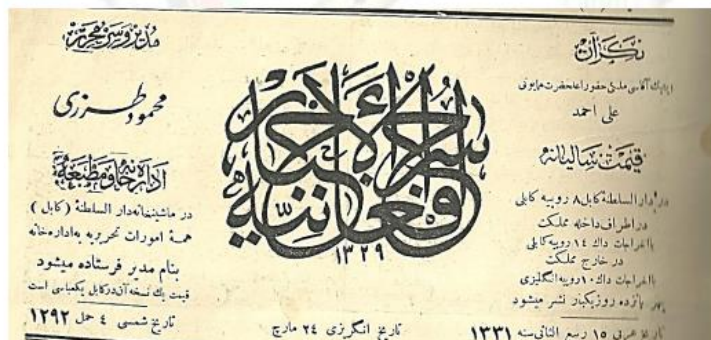 نگران
ایشیک آقاسی ملکی حضور اعلیحضرت همایونی
علی احمد
قیمت سالیانه
در دار السلطنهٔ کابل ۸ روپیه کابلی
در اطراف داخله مملکت
با اخراجات داک ۱۴ روپیه کابلی
در خارج مملکت
با اخراجات داک ۱۰ روپیه انگلیزی
بهر پانزده روز یکبار نشر میشود
تاریخ عربی ۱۵ ربیع الثانی سنه ۱۳۳۱
سراج الأخبار
افغانیه
۱۳۲۹
تاریخ انگریزی ۲۴ مارچ
مدیر و سر محرر
محمود طرزی
اداره خانه و مطبعه
در ماشینخانه دار السلطنهٔ (کابل)
همهٔ امورات تحریریه به اداره خانه
بنام مدیر فرستاده میشود
قیمت یك نسخه آن در کابل یکعباسی است
تاریخ شمسی ٤ حمل ۱۲۹۲